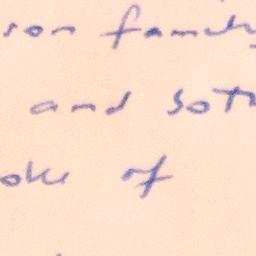 son family
and both
oke of